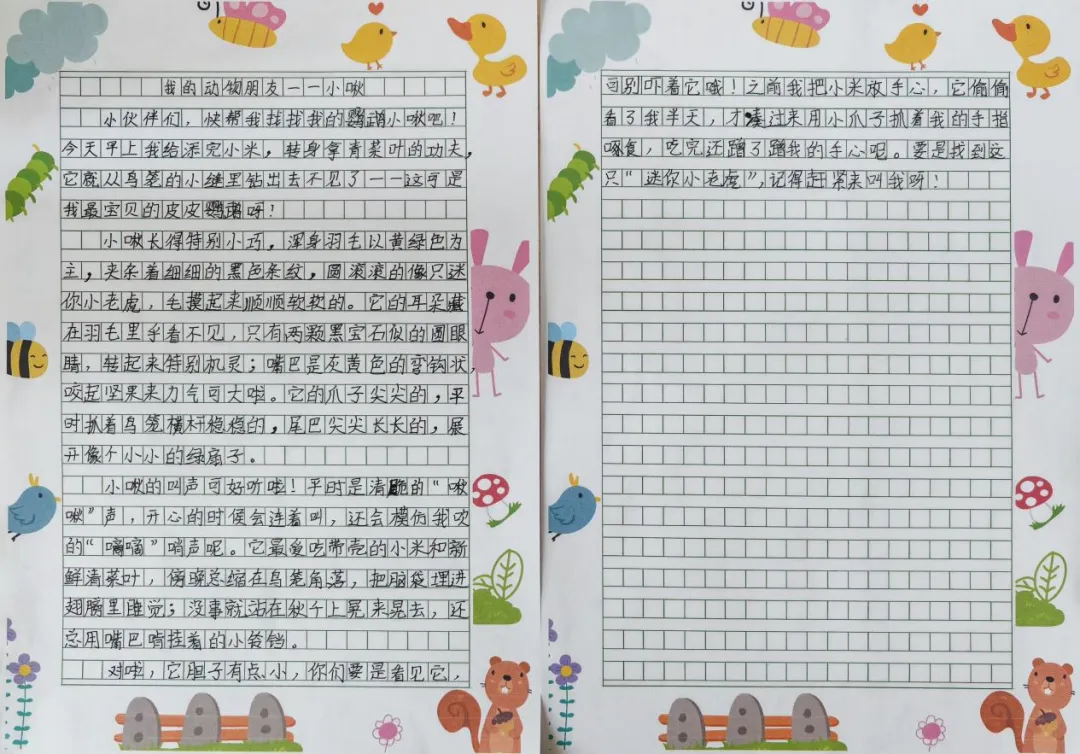 我的动物朋友一一小啾
小伙伴们，快帮我找找我的鹦鹉小啾吧！
今天早上我给添完小米，转身拿青菜叶的功夫，
它就从鸟笼的小缝里钻出去不见了一一这可是
我最宝贝的皮皮鹦鹉呀！
小啾长得特别小巧，浑身羽毛以黄绿色为
主，夹杂着细细的黑色条纹，圆滚滚的像只迷
你小老虎，毛摸起来顺顺软软的。它的耳朵藏
在羽毛里乎看不见，只有两颗黑宝石似的圆眼
睛，转起来特别机灵；嘴巴是灰黄色的弯钩状，
咬起坚果来力气可大啦。它的爪子尖尖的，平
时抓着鸟笼横杆稳稳的，尾巴尖尖长长的，展
开像个小小的绿扇子。
小啾的叫声可好听啦！平时是清脆的“啾
啾”声，开心的时候会连着叫，还会模仿我吹
的“嘀嘀”哨声呢。它最爱吃带壳的小米和新
鲜清菜叶，傍晚总缩在鸟笼角落，把脑袋埋进
翅膀里睡觉；没事就站在秋千上晃来晃去，还
总用嘴巴啃挂着的小铃铛。
对啦，它胆子有点小，你们要是看见它，
可别吓着它哦！之前我把小米放手心，它偷偷
看了我半天，才凑过来用小爪子抓着我的手指
啄食，吃完还蹭了蹭我的手心呢。要是找到这
只“迷你小老虎”，记得赶紧来叫我呀！